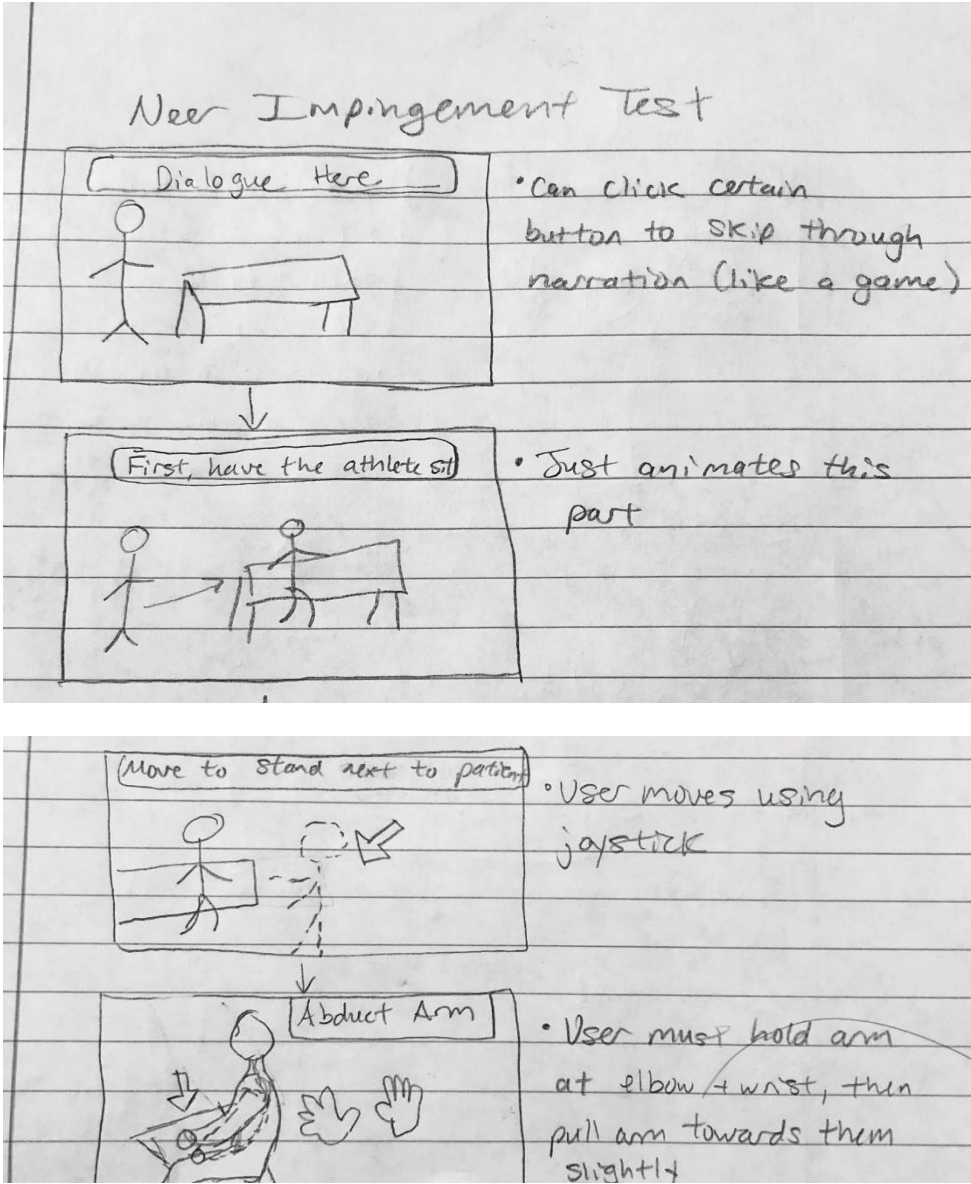 Neer Impingement Test
Dialogue Here
• Can click certain
button to skip through
narration (like a game)
First, have the athlete sit
• Just animates this
part
Move to stand next to patient
• User moves using
joystick
Abduct Arm
• User must hold arm
at elbow + wrist, then
pull arm towards them
slightly